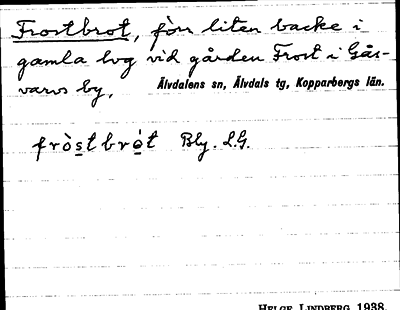 Frostbrot, förr liten backe i
gamla lvg vid gården Frost i Gås-
varvs by,
Älvdalens sn, Älvdals tg, Kopparbergs län.
fròstbrót Bly. L.G.
HELGE LINDBERG 1938.